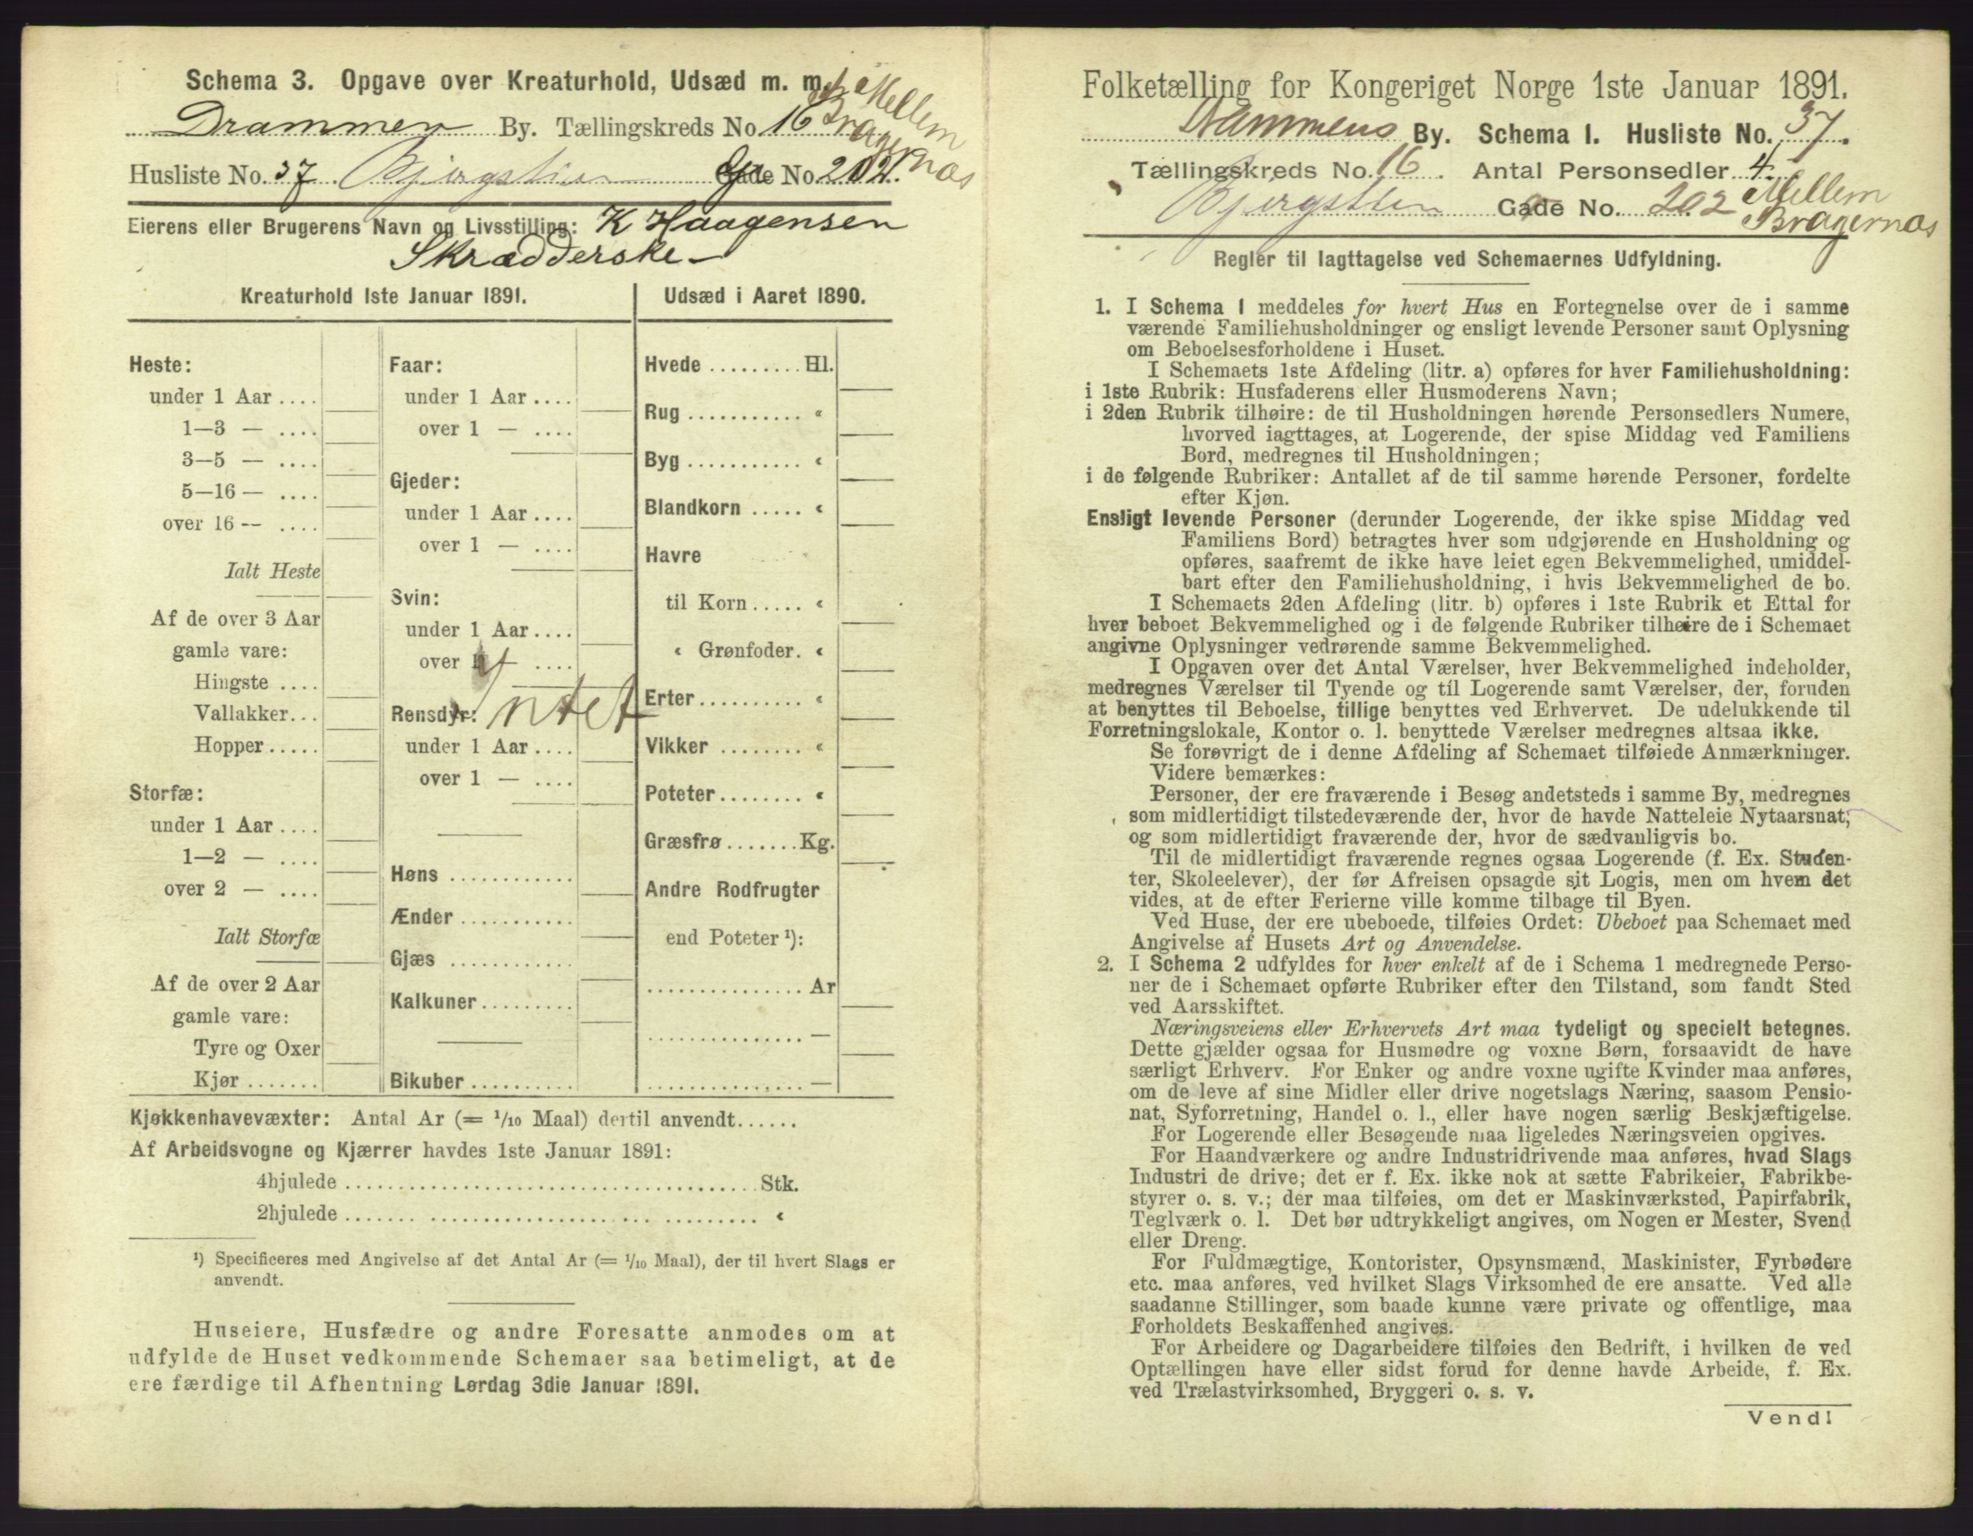 Schema 3. Opgave over Kreaturhold, Udsæd m. m.
Drammen By. Tællingskreds No 16 Mellem
Bragernæs
Husliste No. 37 Bjergstien Gade No 202.
Eierens eller Brugerens Navn og Livsstilling: K Haagensen
Skrædderske
Kreaturhold 1ste Januar 1891.
Heste:
under 1 Aar ....
1—3 — ....
3—5 — ....
5—16 — ....
over 16 — ....
Ialt Heste
Af de over 3 Aar
gamle vare:
Hingste ....
Vallakker...
Hopper.....
Storfæ:
under 1 Aar ....
1—2 — ....
over 2 — ....
Ialt Storfæ
Af de over 2 Aar
gamle vare:
Tyre og Oxer
Kjør .......
Faar:
under 1 Aar ....
over 1 — ....
Gjeder:
under 1 Aar ....
over 1 — ....
Svin:
under 1 Aar ....
over 1 — ....
Intet
Rensdyr:
under 1 Aar ....
over 1 — ....
Høns ............
Ænder ...........
Gjæs ............
Kalkuner.........
Bikuber ..........
Udsæd i Aaret 1890.
Hvede ......... Hl.
Rug ........... «
Byg ........... «
Blandkorn ..... «
Havre
til Korn ..... «
« Grønfoder. «
Erter.......... «
Vikker ........ «
Poteter........ «
Græsfrø .......Kg.
Andre Rodfrugter
end Poteter ¹):
............... Ar
............... —
............... —
Kjøkkenhavevæxter: Antal Ar (= 1/10 Maal) dertil anvendt......
Af Arbeidsvogne og Kjærrer havdes 1ste Januar 1891:
4hjulede ....................................... Stk.
2hjulede ....................................... «
¹) Specificeres med Angivelse af det Antal Ar (= 1/10 Maal), der til hvert Slags er
anvendt.
Huseiere, Husfædre og andre Foresatte anmodes om at
udfylde de Huset vedkommende Schemaer saa betimeligt, at de
ere færdige til Afhentning Lørdag 3die Januar 1891.
Folketælling for Kongeriget Norge 1ste Januar 1891.
Drammens By. Schema 1. Husliste No. 37.
Tællingskreds No. 16. Antal Personsedler 4.
Bjergstien Gade No. 202 Mellem
Bragernæs
Regler til Iagttagelse ved Schemaernes Udfyldning.
1. I Schema 1 meddeles for hvert Hus en Fortegnelse over de i samme
værende Familiehusholdninger og ensligt levende Personer samt Oplysning
om Beboelsesforholdene i Huset.
I Schemaets 1ste Afdeling (litr. a) opføres for hver Familiehusholdning:
i 1ste Rubrik: Husfaderens eller Husmoderens Navn;
i 2den Rubrik tilhøire: de til Husholdningen hørende Personsedlers Numere,
hvorved iagttages, at Logerende, der spise Middag ved Familiens
Bord, medregnes til Husholdningen;
i de følgende Rubriker: Antallet af de til samme hørende Personer, fordelte
efter Kjøn.
Ensligt levende Personer (derunder Logerende, der ikke spise Middag ved
Familiens Bord) betragtes hver som udgjørende en Husholdning og
opføres, saafremt de ikke have leiet egen Bekvemmelighed, umiddel-
bart efter den Familiehusholdning, i hvis Bekvemmelighed de bo.
I Schemaets 2den Afdeling (litr. b) opføres i 1ste Rubrik et Ettal for
hver beboet Bekvemmelighed og i de følgende Rubriker tilhøire de i Schemaet
angivne Oplysninger vedrørende samme Bekvemmelighed.
I Opgaven over det Antal Værelser, hver Bekvemmelighed indeholder,
medregnes Værelser til Tyende og til Logerende samt Værelser, der, foruden
at benyttes til Beboelse, tillige benyttes ved Erhvervet. De udelukkende til
Forretningslokale, Kontor o. l. benyttede Værelser medregnes altsaa ikke.
Se forøvrigt de i denne Afdeling af Schemaet tilføiede Anmærkninger.
Videre bemærkes:
Personer, der ere fraværende i Besøg andetsteds i samme By, medregnes
som midlertidigt tilstedeværende der, hvor de havde Natteleie Nytaarsnat,
og som midlertidigt fraværende der, hvor de sædvanligvis bo.
Til de midlertidigt fraværende regnes ogsaa Logerende (f. Ex. Studen-
ter, Skoleelever), der før Afreisen opsagde sit Logis, men om hvem det
vides, at de efter Ferierne ville komme tilbage til Byen.
Ved Huse, der ere ubeboede, tilføies Ordet: Ubeboet paa Schemaet med
Angivelse af Husets Art og Anvendelse.
2. I Schema 2 udfyldes for hver enkelt af de i Schema 1 medregnede Perso-
ner de i Schemaet opførte Rubriker efter den Tilstand, som fandt Sted
ved Aarsskiftet.
Næringsveiens eller Erhvervets Art maa tydeligt og specielt betegnes.
Dette gjælder ogsaa for Husmødre og voxne Børn, forsaavidt de have
særligt Erhverv. For Enker og andre voxne ugifte Kvinder maa anføres,
om de leve af sine Midler eller drive nogetslags Næring, saasom Pensio-
nat, Syforretning, Handel o. l., eller have nogen særlig Beskjæftigelse.
For Logerende eller Besøgende maa ligeledes Næringsveien opgives.
For Haandværkere og andre Industridrivende maa anføres, hvad Slags
Industri de drive; det er f. Ex. ikke nok at sætte Fabrikeier, Fabrikbe-
styrer o. s. v.; der maa tilføies, om det er Maskinværksted, Papirfabrik,
Teglværk o. l. Det bør udtrykkeligt angives, om Nogen er Mester, Svend
eller Dreng.
For Fuldmægtige, Kontorister, Opsynsmænd, Maskinister, Fyrbødere
etc. maa anføres, ved hvilket Slags Virksomhed de ere ansatte. Ved alle
saadanne Stillinger, som baade kunne være private og offentlige, maa
Forholdets Beskaffenhed angives.
For Arbeidere og Dagarbeidere tilføies den Bedrift, i hvilken de ved
Optællingen have eller sidst forud for denne havde Arbeide, f. Ex.
ved Trælastvirksomhed, Bryggeri o. s. v.
Vend!